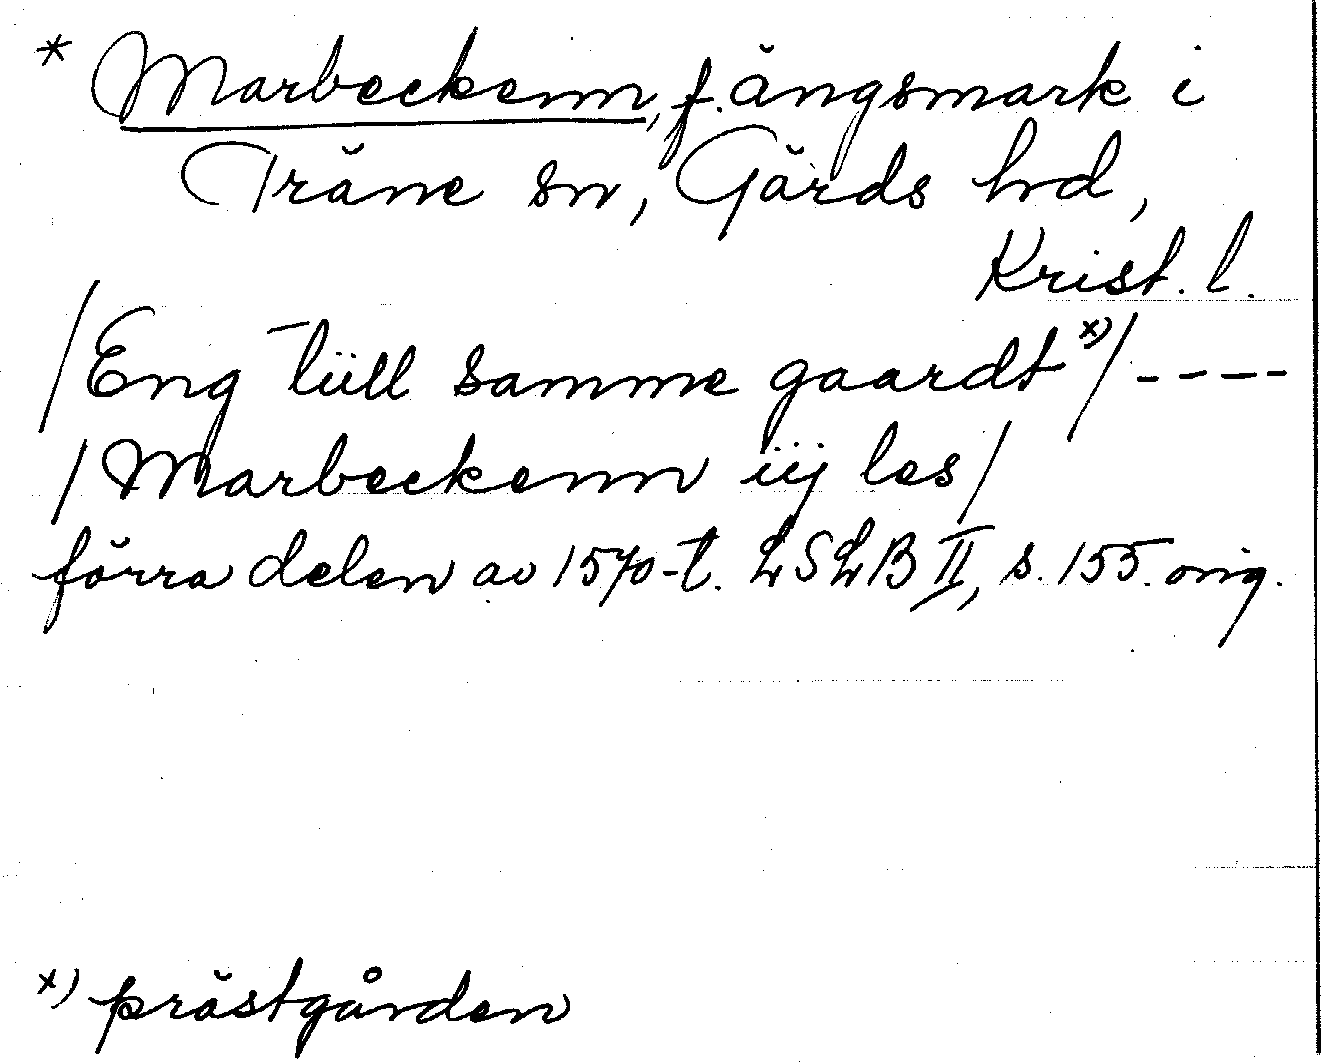 * Marbeckenn, f. ängsmark i
Träne sn, Gärds hd,
Krist. l.
/Eng tüll samme gaardt x)/ ----
/Marbeckenn iij les/
förra delen av 1570-t. LSLB II, s. 155. orig.
x) prästgården